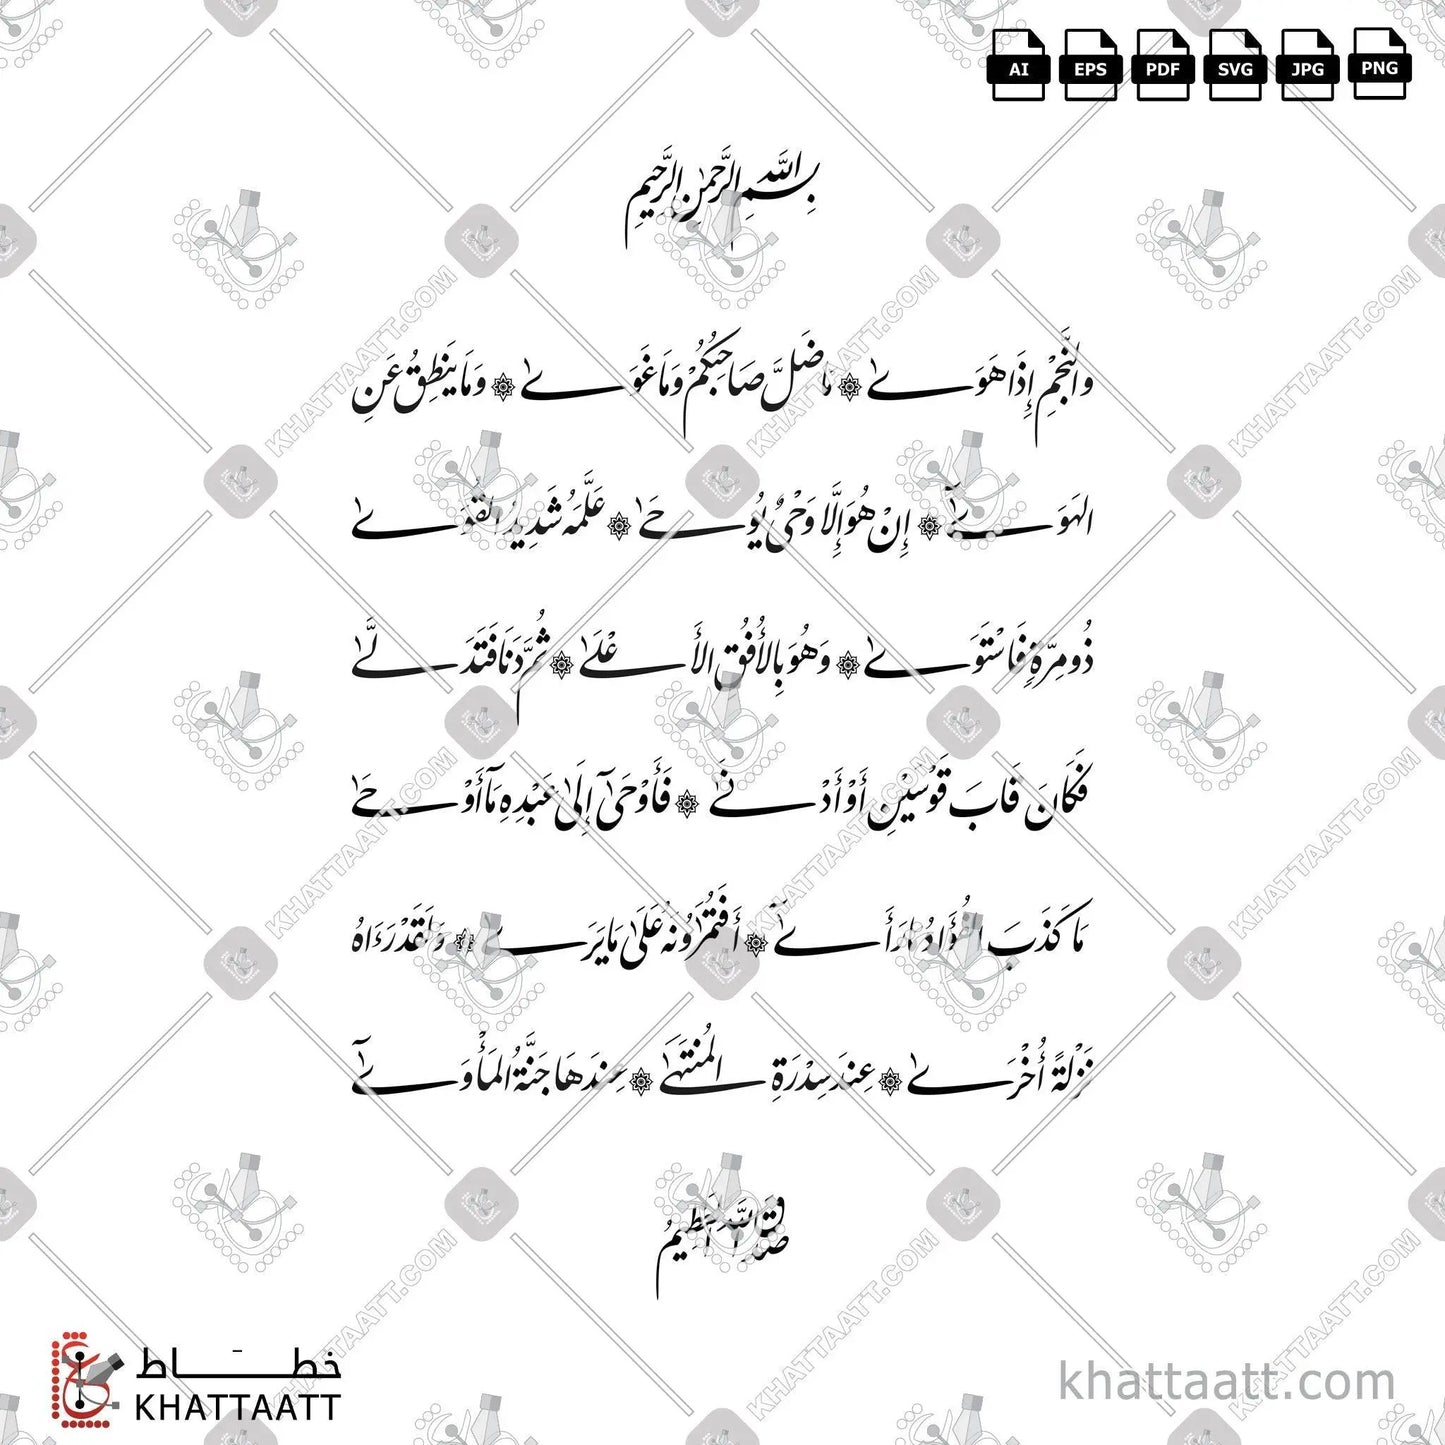 AI EPS PDF SVG JPG PNG
بِسْمِ اللَّهِ الرَّحْمٰنِ الرَّحِيمِ
والنَّجْمِ إِذَا هَوَىٰ ۞ مَا ضَلَّ صَاحِبُكُمْ وَمَا غَوَىٰ ۞ وَمَا يَنطِقُ عَنِ
الهَوَىٰٓ ۞ إِنْ هُوَ إِلَّا وَحْىٌ يُوحَىٰ ۞ عَلَّمَهُ شَدِيدُ القُوَىٰ
ذُو مِرَّةٍ فَاسْتَوَىٰ ۞ وَهُوَ بِالأُفُقِ الأَعْلَىٰ ۞ ثُمَّ دَنَا فَتَدَلَّىٰ
فَكَانَ قَابَ قَوْسَيْنِ أَوْ أَدْنَىٰ ۞ فَأَوْحَىٰٓ إِلَىٰ عَبْدِهِ مَآ أَوْحَىٰ
مَا كَذَبَ الفُؤَادُ مَا رَأَىٰٓ ۞ أَفَتُمَٰرُونَهُ عَلَىٰ مَا يَرَىٰ ۞ وَلَقَدْ رَءَاهُ
نَزْلَةً أُخْرَىٰ ۞ عِندَ سِدْرَةِ المُنتَهَىٰ ۞ عِندَهَا جَنَّةُ المَأْوَىٰٓ
صَدَقَ اللَّهُ العَظِيمُ
خطـاط
KHATTAATT
khattaatt.com
KHATTAATT.COM